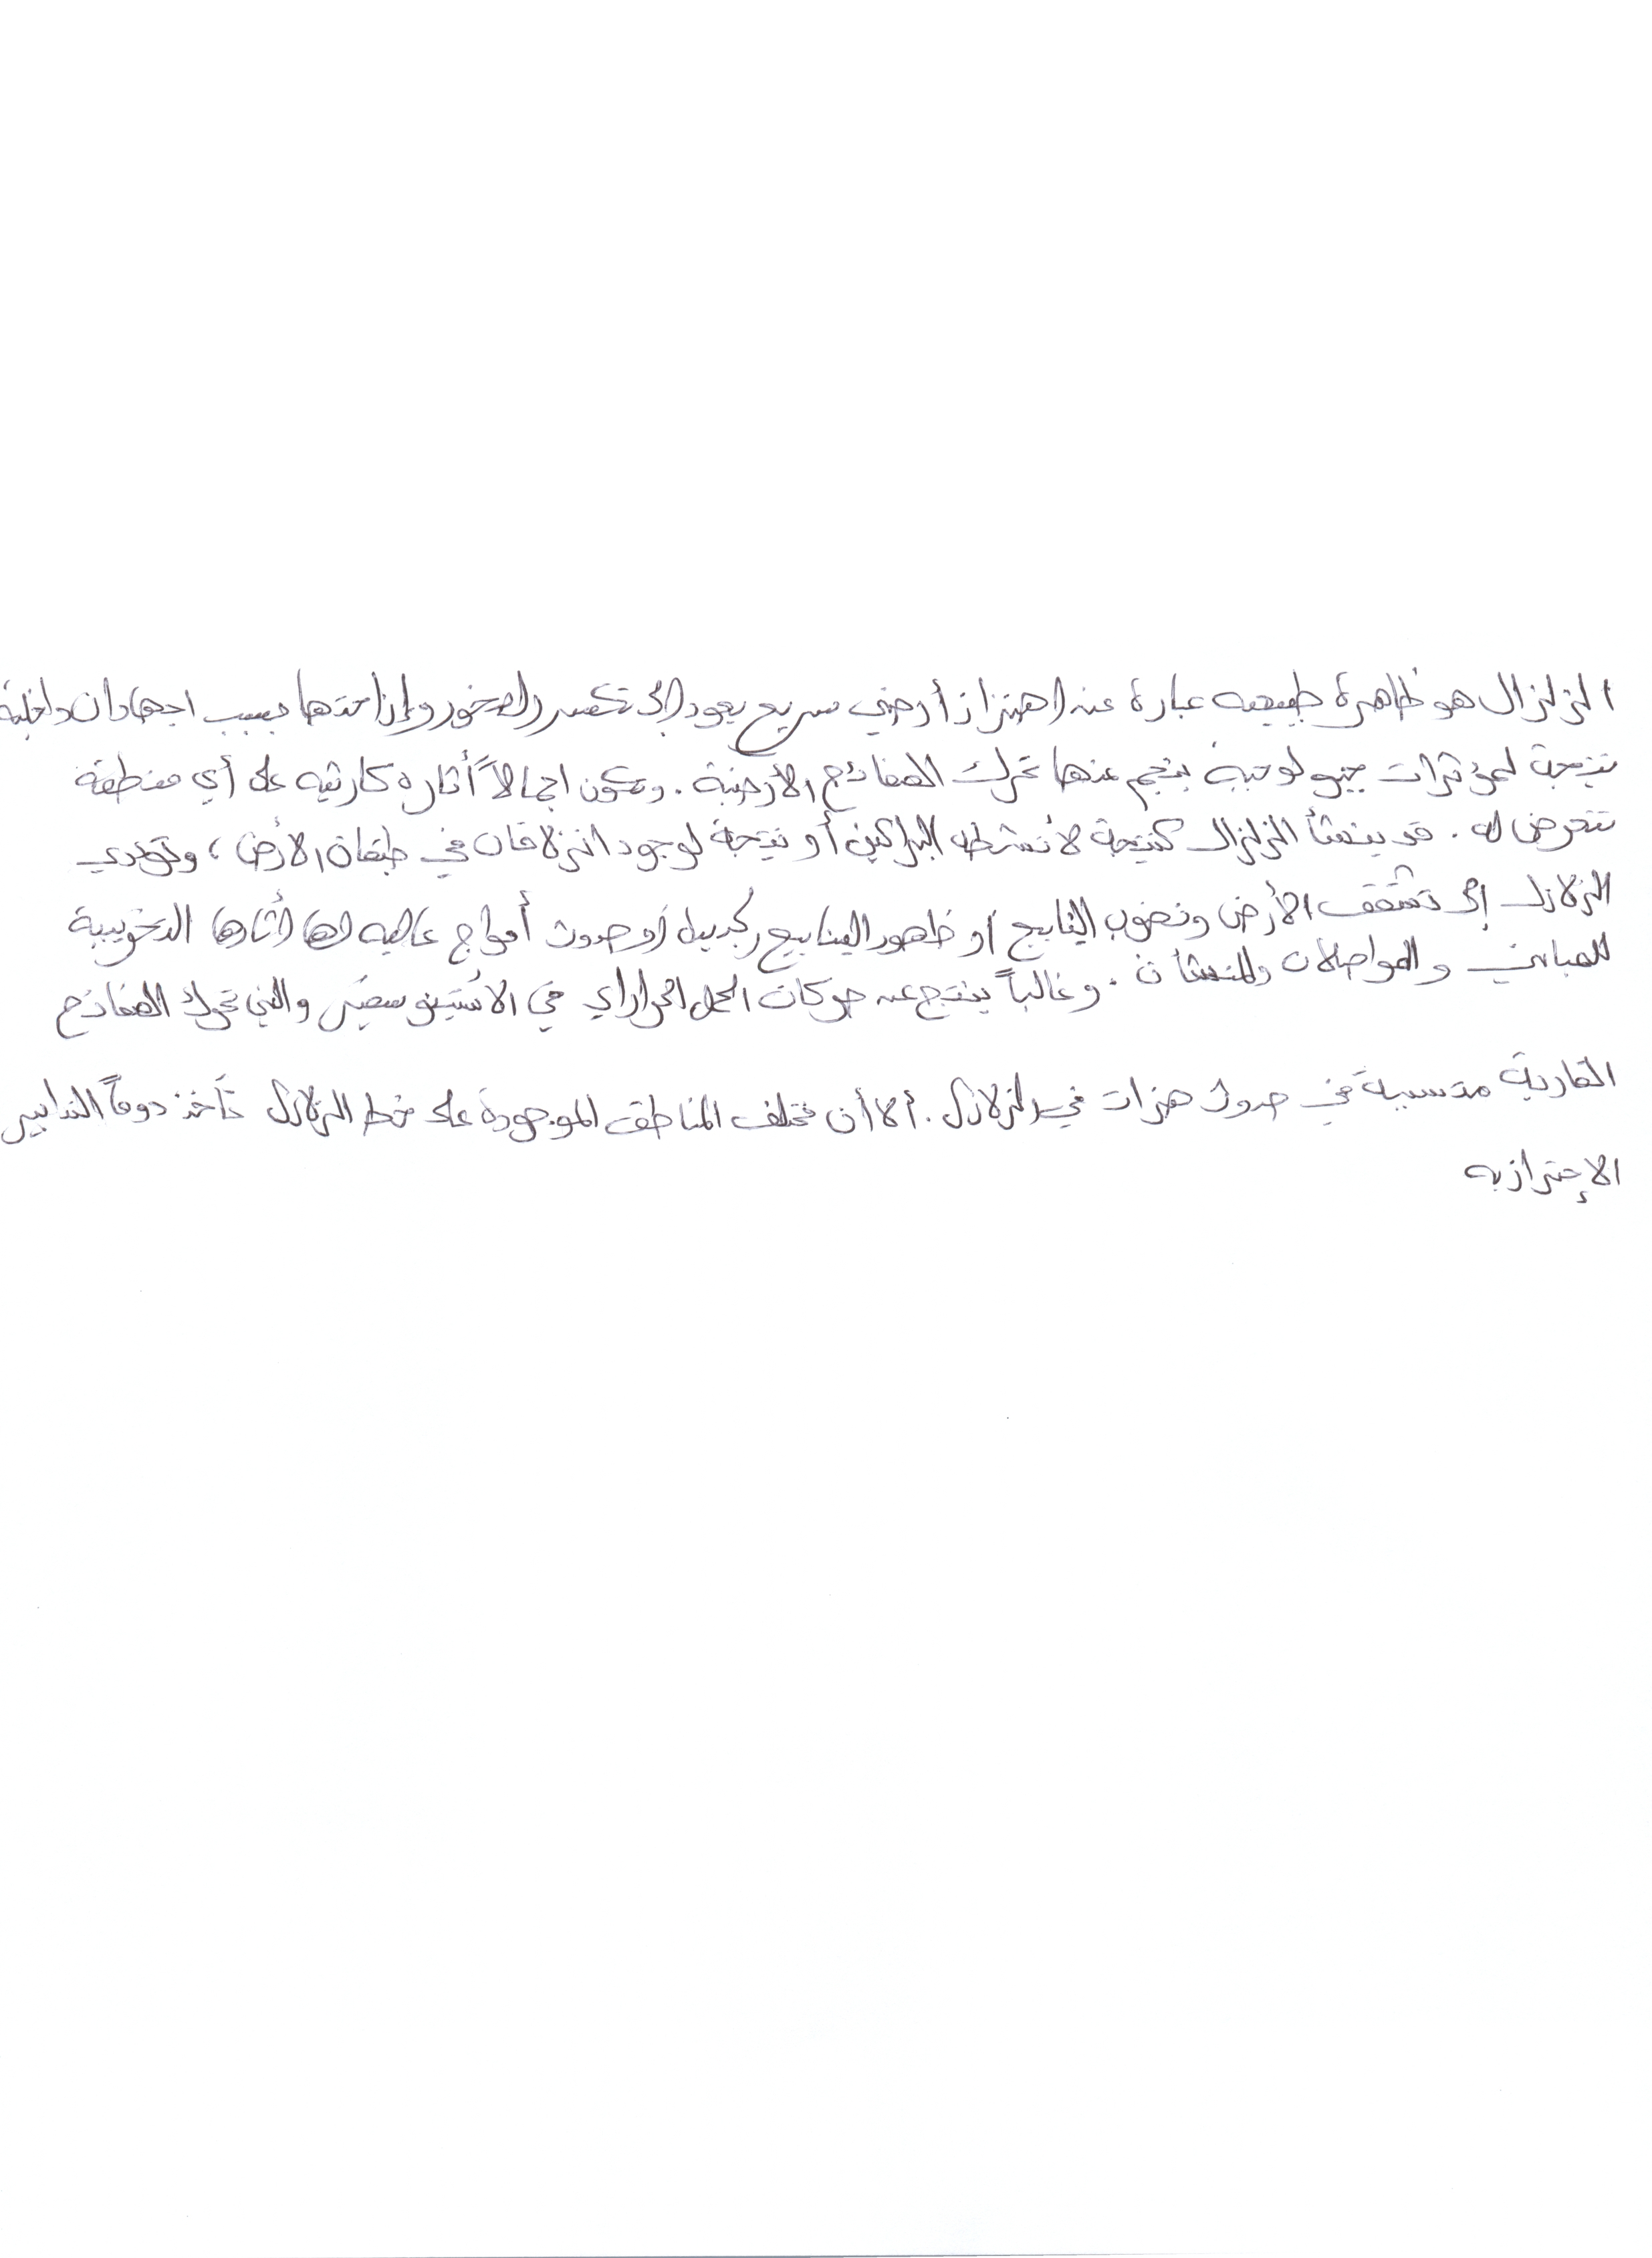 الزلزال هو ظاهرة طبيعيه عبارة عن اهتزاز أرضي سريع يعود إلى تكسر الصخور وإزاحتها بسبب اجهادات داخلية
نتيجة لمؤثرات جيولوجية ينجم عنها تحرك الصفائح الأرضية . وتكون اجمالاً أثاره كارثيه على أي منطقة
تتعرض له . قد ينشأ الزلزال كنتيجة لأنشطه البراكين أو نتيجة لوجود انزلاقات في طبقات الأرض ، وتؤدي
الزلازل إلى تشقق الأرض ونضوب الينابيع أو ظهور الينابيع أو حدوث أمواج عاليه لها أثارها التخريبية
للمباني والمواصلات والمنشآت . وغالباً ينتج عن حركات الحمل الحراراي في الاستينوسفير والتي تحرك الصفائح
القارية متسببة في حدوث هزات الزلازل . ألا أن مختلف المناطق الموجودة على خط الزلازل تأخذ دوماً التدابير
الإحترازيه